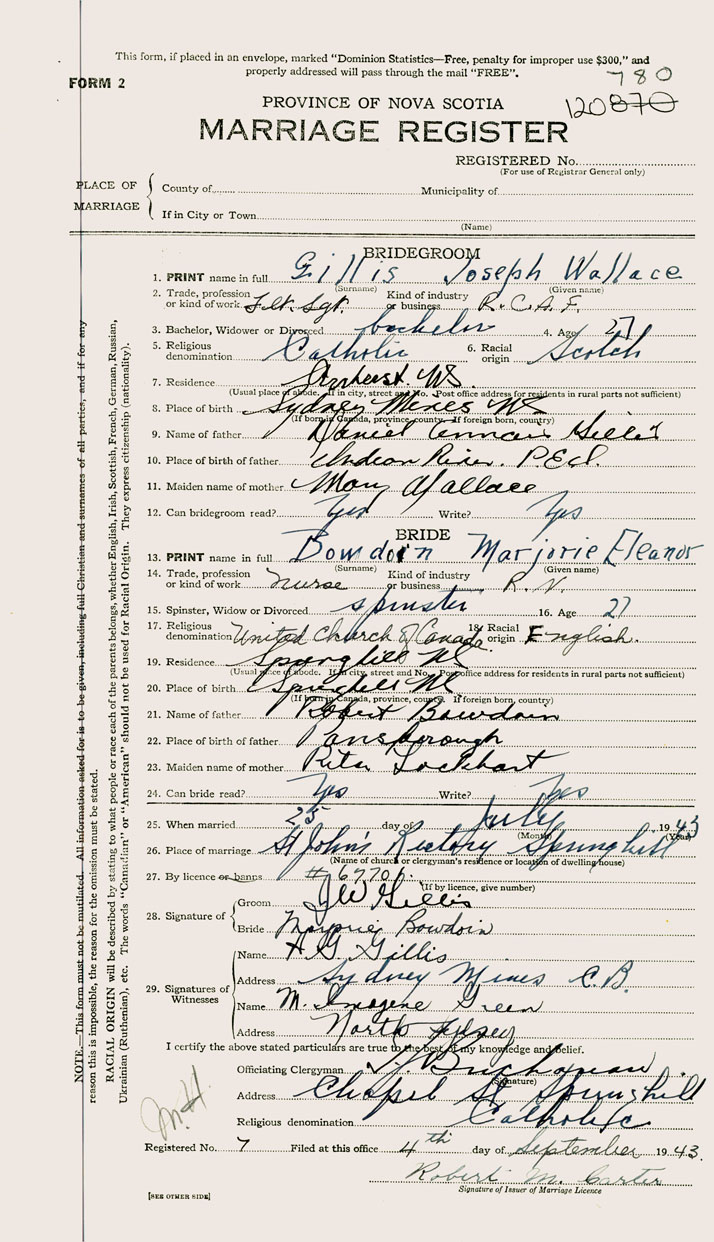 This form, if placed in an envelope, marked "Dominion Statistics—Free, penalty for improper use $300," and
properly addressed will pass through the mail "FREE".
FORM 2
780
120870
PROVINCE OF NOVA SCOTIA
MARRIAGE REGISTER
REGISTERED No.
(For use of Registrar General only)
PLACE OF MARRIAGE
County of Municipality of
If in City or Town
(Name)
BRIDEGROOM
1. PRINT name in full Gillis Joseph Wallace
(Surname) (Given name)
2. Trade, profession or kind of work Flt. Sgt. Kind of industry or business R.C.A.F.
3. Bachelor, Widower or Divorced bachelor 4. Age 27
5. Religious denomination Catholic 6. Racial origin Scotch
7. Residence Amherst NS
(Usual place of abode. If in city, street and No. Post office address for residents in rural parts not sufficient)
8. Place of birth Sydney Mines NS
(If born in Canada, province, county. If foreign born, country)
9. Name of father Daniel Gillis
10. Place of birth of father Indian River. P.E.I.
11. Maiden name of mother Mary Wallace
12. Can bridegroom read? Yes Write? Yes
BRIDE
13. PRINT name in full Bowdoin Marjorie Eleanor
(Surname) (Given name)
14. Trade, profession or kind of work nurse Kind of industry or business R.N.
15. Spinster, Widow or Divorced spinster 16. Age 27
17. Religious denomination United Church of Canada 18. Racial origin English.
19. Residence Springhill NS
(Usual place of abode. If in city, street and No. Post office address for residents in rural parts not sufficient)
20. Place of birth Springhill NS
(If born in Canada, province, county. If foreign born, country)
21. Name of father Robert Bowdoin
22. Place of birth of father Parrsborough
23. Maiden name of mother Rita Lockhart
24. Can bride read? Yes Write? Yes
25. When married 25 day of July 1943
(Month) (Year)
26. Place of marriage St John's Rectory Springhill
(Name of church or clergyman's residence or location of dwelling house)
27. By licence or banns # 67706.
(If by licence, give number)
28. Signature of
Groom JW Gillis
Bride Marjorie Bowdoin
29. Signatures of Witnesses
Name A G Gillis
Address Sydney Mines C.B.
Name M. Imogene Green
Address North Jersey
I certify the above stated particulars are true to the best of my knowledge and belief.
Officiating Clergyman Buchanan
(Signature)
Address Chapel St, Springhill
Religious denomination Catholic
Registered No. 7 Filed at this office 4th day of September 1943.
Robert M. Carter
Signature of Issuer of Marriage Licence
[SEE OTHER SIDE]
NOTE.—This form must not be mutilated. All information asked for is to be given, including full Christian and surnames of all parties, and if for any
reason this is impossible, the reason for the omission must be stated.
RACIAL ORIGIN will be described by stating to what people or race each of the parents belongs, whether English, Irish, Scottish, French, German, Russian,
Ukrainian (Ruthenian), etc. The words "Canadian" or "American" should not be used for Racial Origin. They express citizenship (nationality).